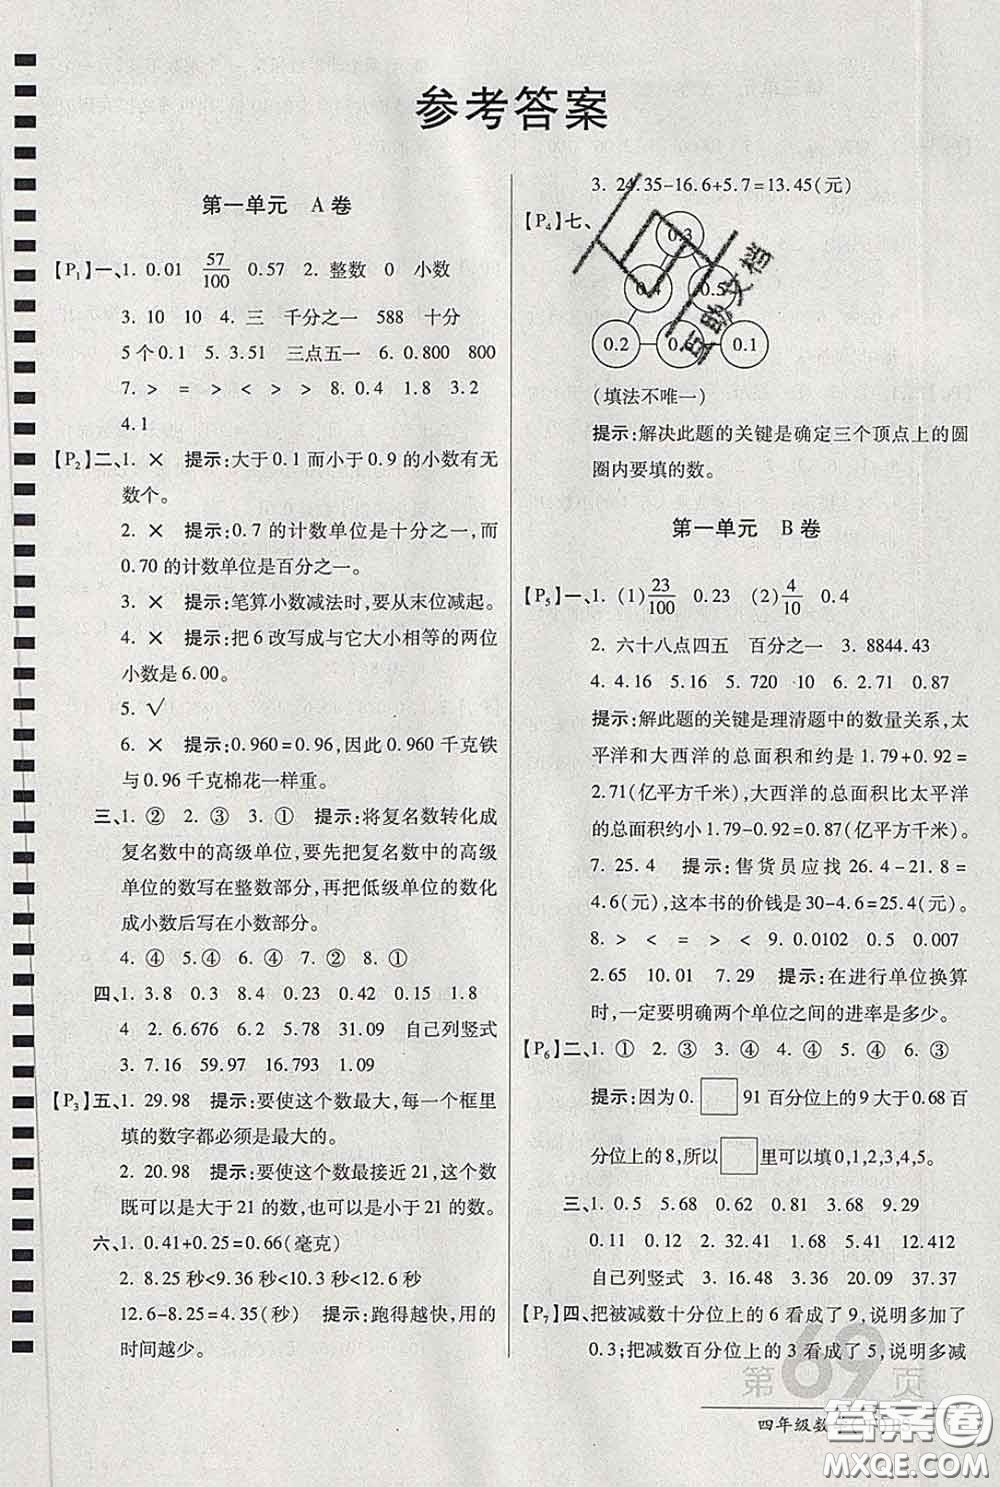 参考答案
第一单元 A卷
【P1】一、1. 0.01 57/100 0.57 2. 整数 0 小数
3. 10 10 4. 三 千分之一 588 十分
5个0.1 5. 3.51 三点五一 6. 0.800 800
7. > = > < > > 8. 0.4 1.8 3.2
4.1
【P2】二、1. × 提示:大于0.1而小于0.9的小数有无
数个。
2. × 提示:0.7的计数单位是十分之一,而
0.70的计数单位是百分之一。
3. × 提示:笔算小数减法时,要从末位减起。
4. × 提示:把6改写成与它大小相等的两位
小数是6.00。
5. √
6. × 提示:0.960=0.96,因此0.960千克铁
与0.96千克棉花一样重。
三、1. ② 2. ③ 3. ① 提示:将复名数转化成
复名数中的高级单位,要先把复名数中的高级
单位的数写在整数部分,再把低级单位的数化
成小数后写在小数部分。
4. ④ 5. ④ 6. ④ 7. ② 8. ①
四、1. 3.8 0.3 8.4 0.23 0.42 0.15 1.8
4 2. 6.676 6.2 5.78 31.09 自己列竖式
3. 7.16 59.97 16.793 1.09
【P3】五、1. 29.98 提示:要使这个数最大,每一个框里
填的数字都必须是最大的。
2. 20.98 提示:要使这个数最接近21,这个数
既可以是大于21的数,也可以是小于21的数。
六、1. 0.41+0.25=0.66(毫克)
2. 8.25秒<9.36秒<10.3秒<12.6秒
12.6-8.25=4.35(秒) 提示:跑得越快,用的
时间越少。
3. 24.35-16.6+5.7=13.45(元)
【P4】七、
0.3
0.4 0.5
0.2 0.1
(填法不唯一)
提示:解决此题的关键是确定三个顶点上的圆
圈内要填的数。
第一单元 B卷
【P5】一、1. (1)23/100 0.23 (2)4/10 0.4
2. 六十八点四五 百分之一 3. 8844.43
4. 4.16 5.16 5. 720 10 6. 2.71 0.87
提示:解此题的关键是理清题中的数量关系,太
平洋和大西洋的总面积和约是1.79+0.92=
2.71(亿平方千米),大西洋的总面积比太平洋
的总面积约小1.79-0.92=0.87(亿平方千米)。
7. 25.4 提示:售货员应找26.4-21.8=
4.6(元),这本书的价钱是30-4.6=25.4(元)。
8. > < = > < 9. 0.0102 0.5 0.007
2.65 10.01 7.29 提示:在进行单位换算
时,一定要明确两个单位之间的进率是多少。
【P6】二、1. ① 2. ③ 3. ④ 4. ④ 5. ④ 6. ③
提示:因为0.□91百分位上的9大于0.68百
分位上的8,所以□里可以填0,1,2,3,4,5。
三、1. 0.5 5.68 0.62 0.81 3.68 9.29
0.11 0.12 2. 4.88 1.06 5.41 12.412
自己列竖式 3. 2.02 49.8 20.21 37.37
【P7】四、把被减数十分位上的6看成了9,说明多加了
0.3;把减数百分位上的3看成了5,说明多减
第69页
四年级数
答案圈
MXQE.COM